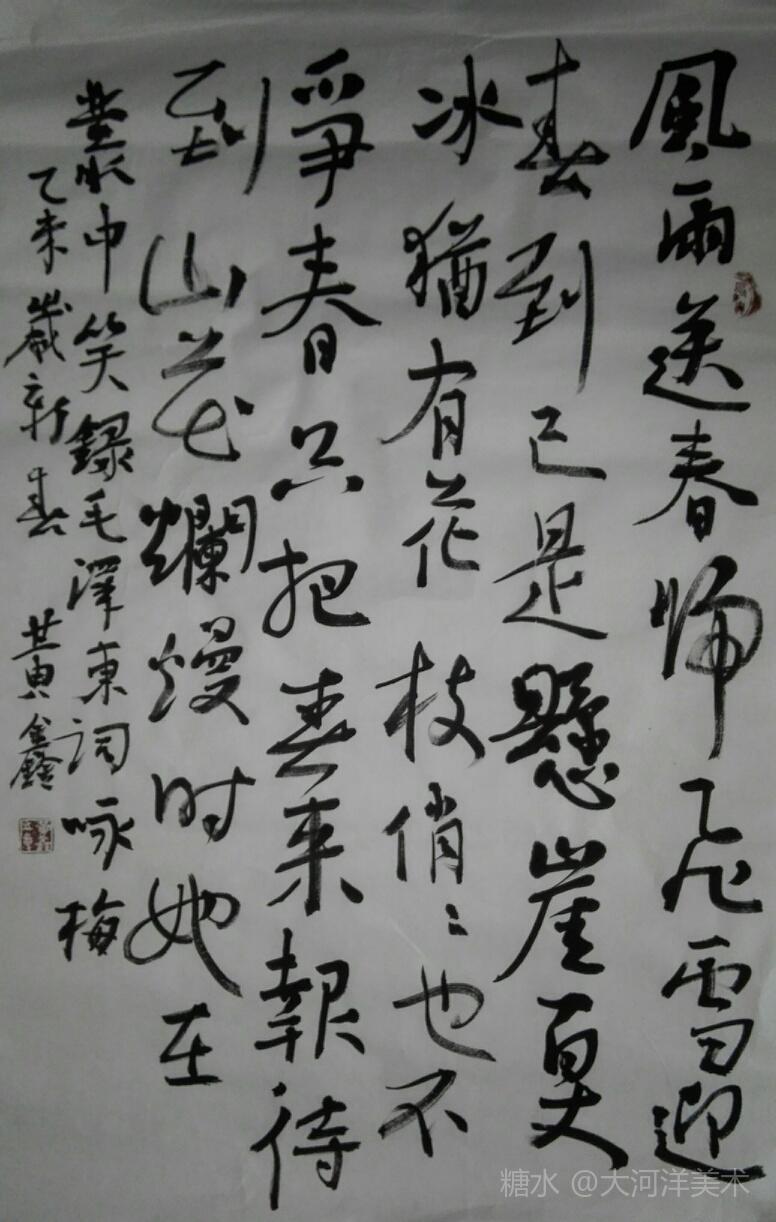 風雨送春归飛雪迎
春到已是懸崖百丈
冰猶有花枝俏〻也不
爭春只把春来報待
到山花爛熳时她在
叢中笑 錄毛澤東词咏梅
乙未歲新春 黄鑫
糖水 @大河洋美术